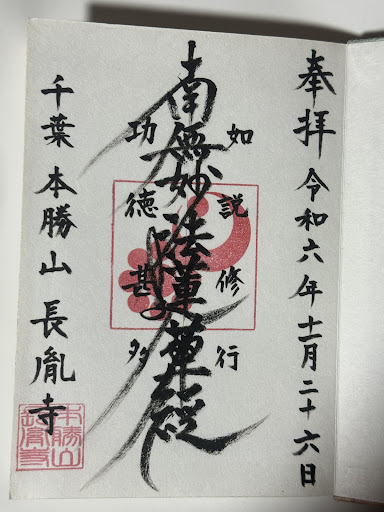 奉拝 令和六年十一月二十六日
如説修行
南無妙法蓮華経
功徳甚多
千葉 本勝山 長胤寺
本勝山
長胤寺